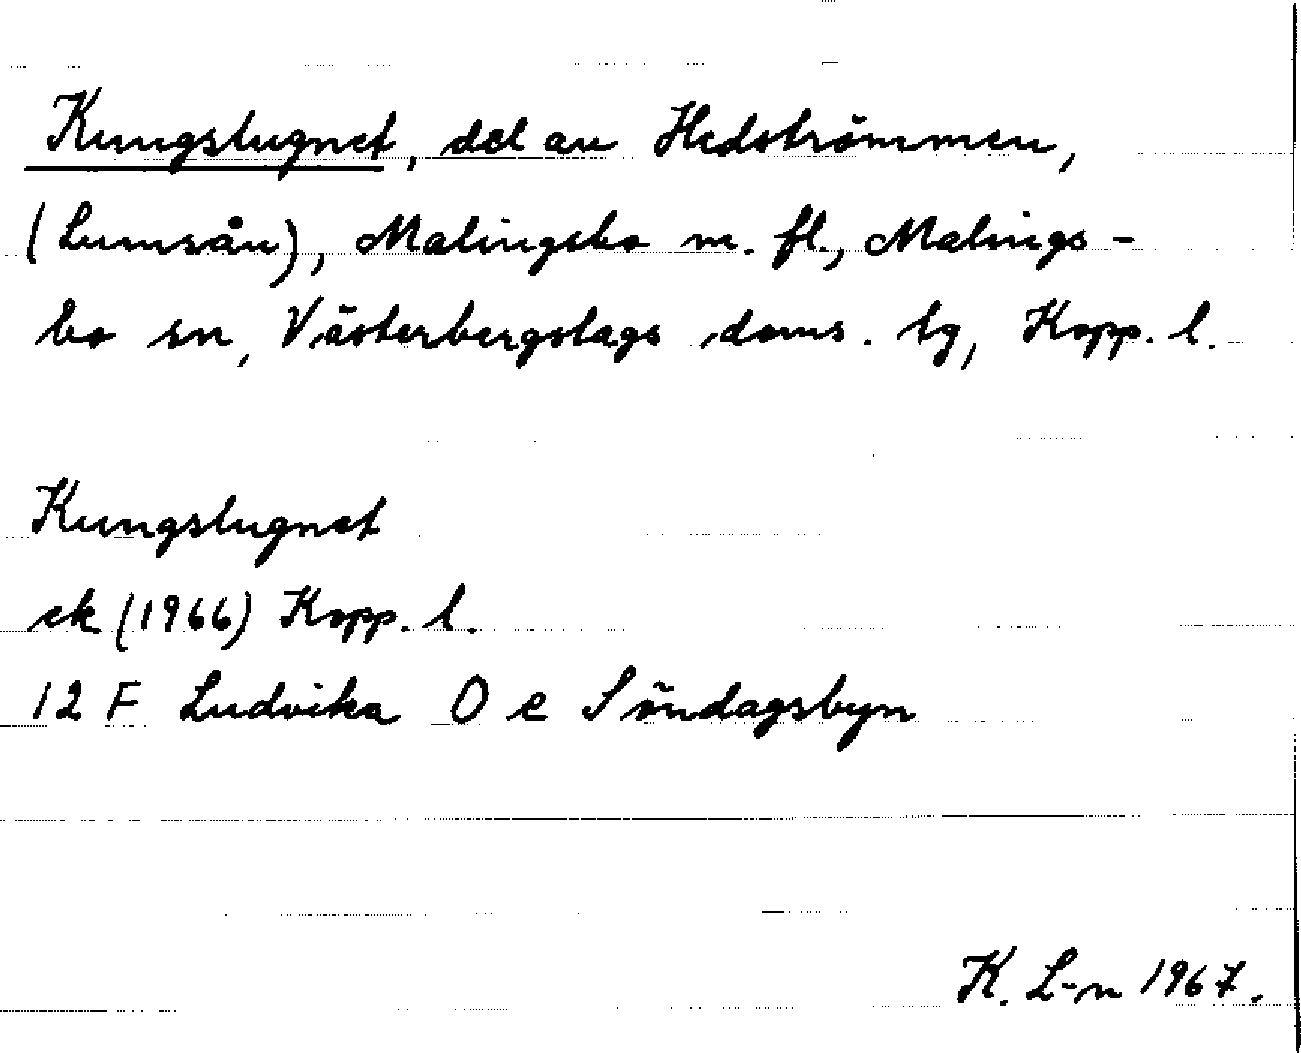 Kungslugnet, del av Hedströmmen,
(Lumsån), Malingsbo m. fl., Malings-
bo sn, Västerbergslags doms. tg, Kopp. l.
Kungslugnet
ek (1966) Kopp. l.
12 F Ludvika 0 e Söndagsbyn
K. L-n 1967.